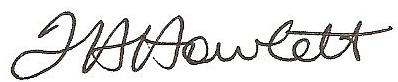 J H Howlett